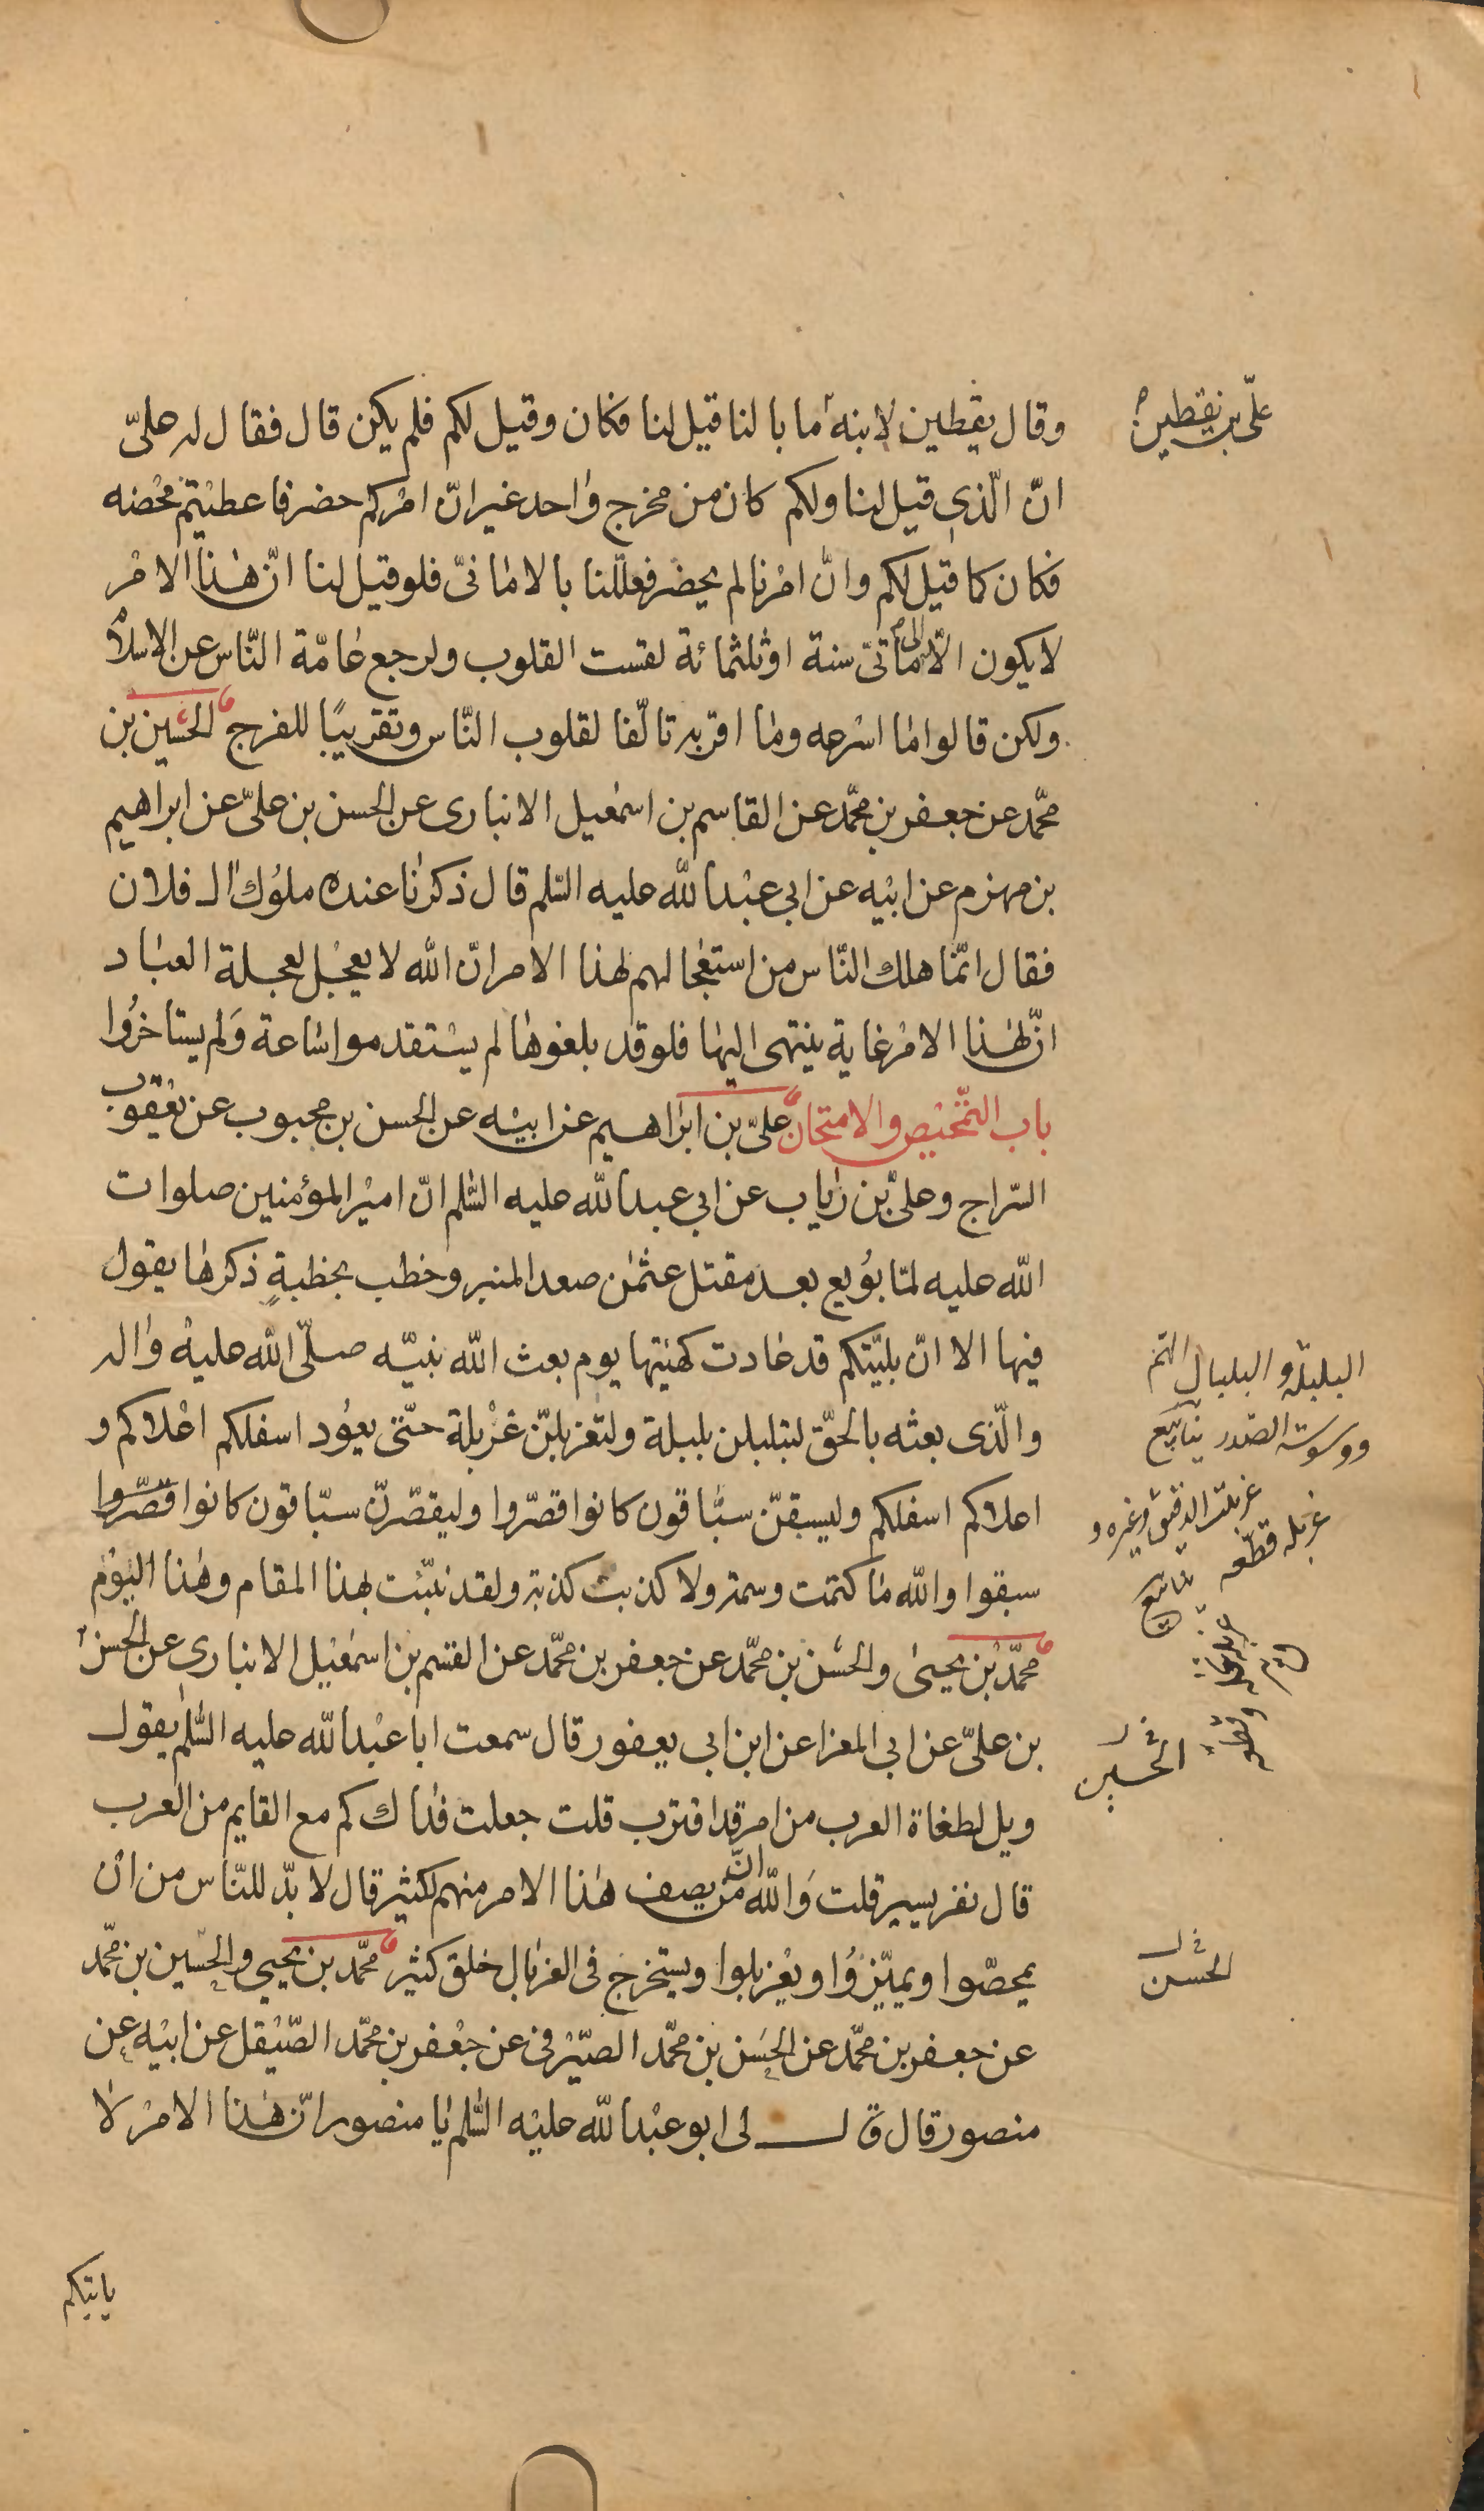 وقال يقطين لابنه ما بالنا قيل لنا فكان وقيل لكم فلم يكن قال فقال له علىّ
علىّ بن يقطين
انّ الّذى قيل لنا ولكم كان من مخرج واحد غير انّ امركم حضر فاعطيتم محضه
فكان كما قيل لكم وانّ امرنا لم يحضر فعلّلنا بالامانىّ فلو قيل لنا انّ هذا الامر
لا يكون الّا الى مأتى سنة او ثلثمائة لقست القلوب ولرجع عامّة النّاس عن الاسلام
ولكن قالوا ما اسرعه وما اقربه تالّفا لقلوب النّاس وتقريبًا للفرج الحسين بن
محمّد عن جعفر بن محمّد عن القاسم بن اسمعيل الانبارى عن الحسن بن علىّ عن ابراهيم
بن مهزم عن ابيه عن ابي عبد الله عليه السّلم قال ذكرنا عنده ملوك ال فلان
فقال انّما هلك النّاس من استعجالهم لهذا الامر انّ الله لا يعجل لعجلة العباد
انّ لهذا الامر غاية ينتهى اليها فلو قد بلغوها لم يستقدموا ساعة ولم يستاخروا
باب التّمحيص والامتحان علىّ بن ابراهيم عن ابيه عن الحسن بن محبوب عن يعقوب
السّراج وعلىّ بن رياب عن ابي عبد الله عليه السّلم انّ امير المؤمنين صلوات
الله عليه لمّا بويع بعد مقتل عثمن صعد المنبر وخطب بخطبةٍ ذكرها يقول
فيها الا انّ بليّتكم قد عادت كهيئتها يوم بعث الله نبيّه صلّى الله عليه واله
والّذى بعثه بالحقّ لتبلبلن بلبلة ولتغربلنّ غربلة حتّى يعود اسفلكم اعلاكم و
اعلاكم اسفلكم وليسبقنّ سبّاقون كانوا قصّروا وليقصّرنّ سبّاقون كانوا قصّروا
سبقوا والله ما كتمت وسمة ولا كذبت كذبة ولقد نبّئت بهذا المقام وهذا اليوم
محمّد بن يحيى والحسن بن محمّد عن جعفر بن محمّد عن القسم بن اسمعيل الانبارى عن الحسن
بن علىّ عن ابى المغرا عن ابن ابى يعفور قال سمعت ابا عبد الله عليه السّلم يقول
ويل لطغاة العرب من امر قد اقترب قلت جعلت فداك كم مع القايم من العرب
قال نفر يسير قلت والله انّ من يصف هذا الامر منهم لكثير قال لا بدّ للنّاس من ان
يمحصّوا ويميّزوا ويغربلوا ويستخرج فى الغربال خلق كثير محمّد بن يحيى والحسين بن محمّد
عن جعفر بن محمّد عن الحسن بن محمّد الصّيرفى عن جعفر بن محمّد الصّيقل عن ابيه عن
منصور قال قال لى ابو عبد الله عليه السّلم يا منصور انّ هذا الامر لا
البلبلة والبلبال الهمّ
ووسوسة الصّدر
غربلت الدقيق وغيره و
غربله قطّعه
الحسين
الحسن
ياتيكم